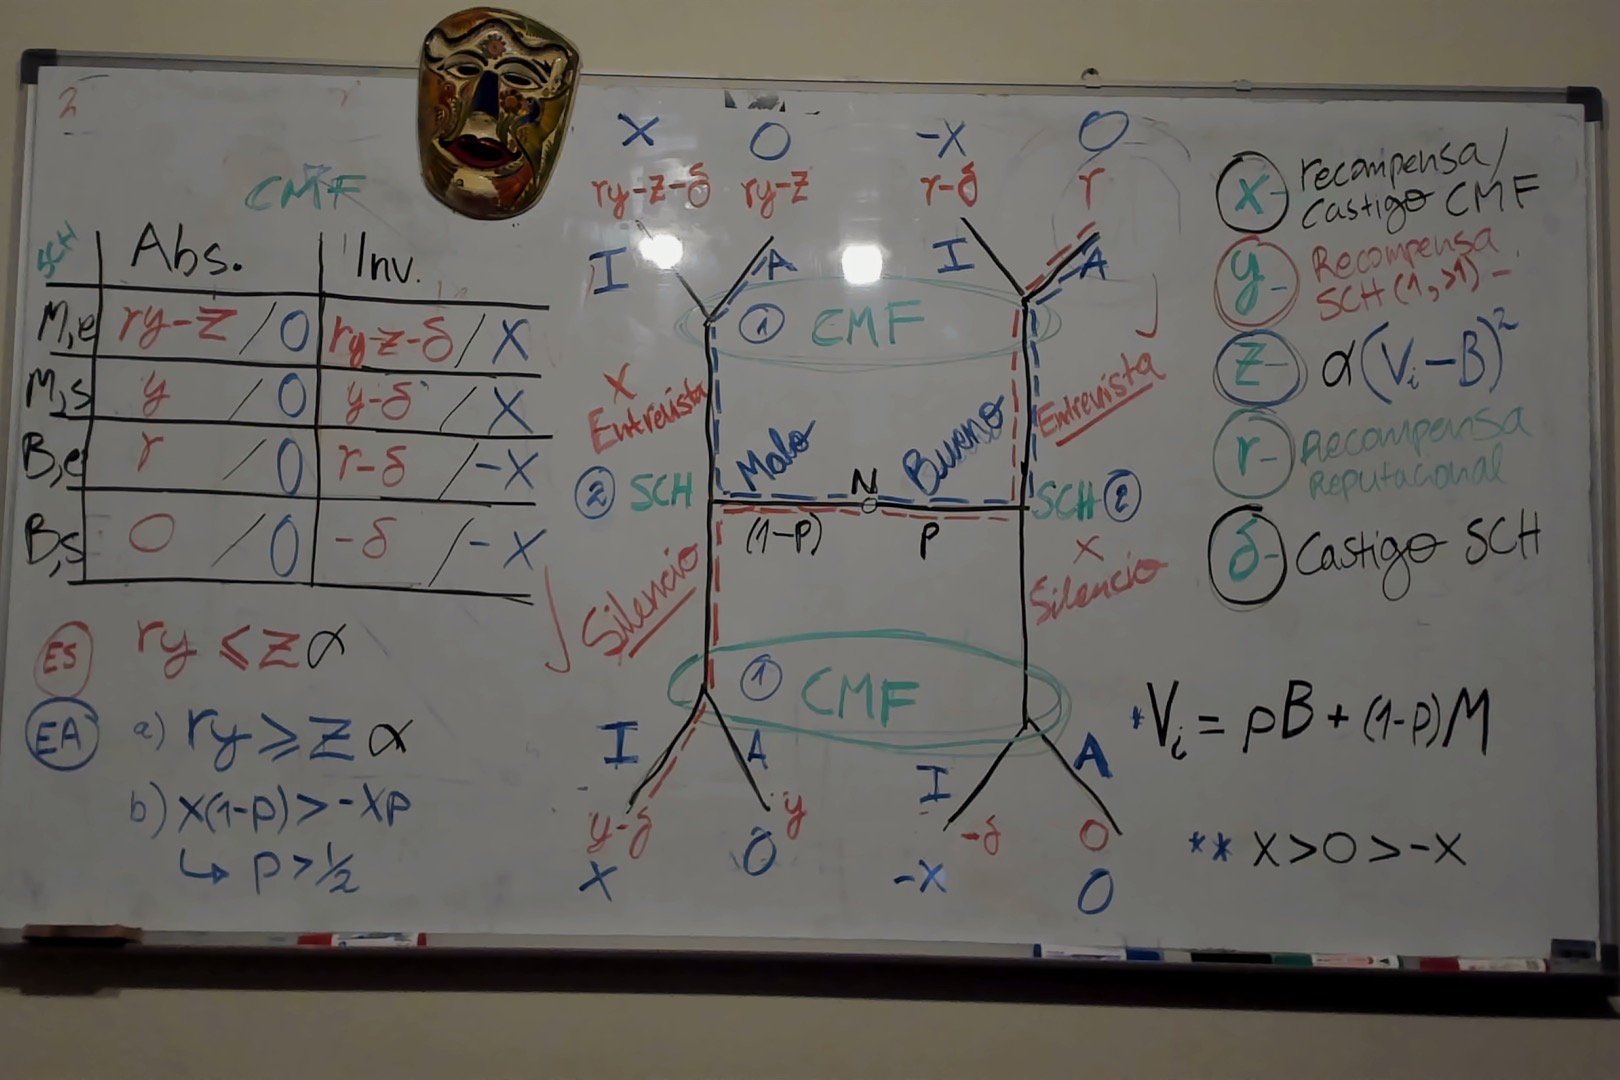 2
CMF
SCH
Abs.
Inv.
M,e
ry-z / 0
ry-z-δ / X
M,s
y / 0
y-δ / X
B,e
r / 0
r-δ / -X
B,s
0 / 0
-δ / -X
ES
ry ≤ z α
EA
a) ry ≥ z α
b) x(1-p) > -xp
↳ p > 1/2
X
0
-X
0
ry-z-δ
ry-z
r-δ
r
I
A
I
A
① CMF
X
Entrevista
Entrevista
Malo
Bueno
② SCH
N
SCH ②
(1-P)
P
Silencio
X
Silencio
① CMF
I
A
I
A
y-δ
y
-δ
0
X
0
-X
0
X- recompensa/
Castigo CMF
y- Recompensa
SCH (1,>1) -
Z- α(Vi-B)²
r- Recompensa
Reputacional
δ- Castigo SCH
*Vi = pB + (1-p)M
** X > 0 > -X